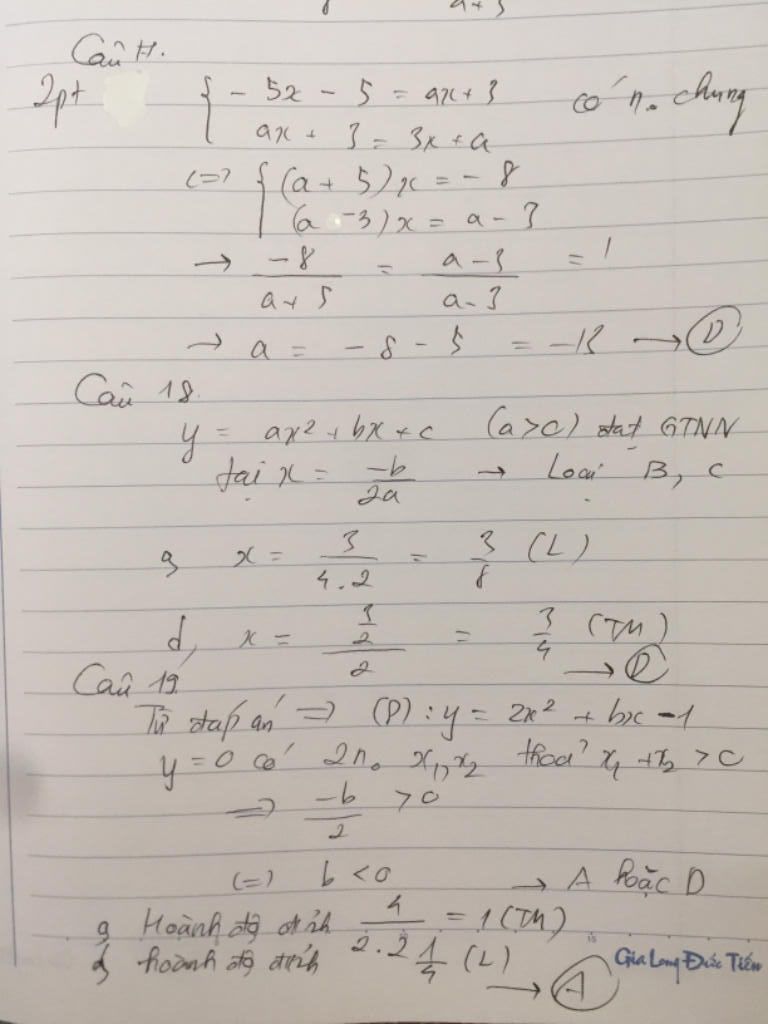 a+5
Câu 17.
2pt { - 5x - 5 = ax + 3 có n. chung
ax + 3 = 3x + a
<=> { (a + 5)x = - 8
(a - 3)x = a - 3
→ -8/(a+5) = (a-3)/(a-3) = 1
→ a = - 8 - 5 = -13 → D
Câu 18.
y = ax² + bx + c (a>0) đạt GTNN
tại x = -b/2a → Loại B, C
a, x = 3/(4.2) = 3/8 (L)
d, x = (3/2)/2 = 3/4 (TM)
→ D
Câu 19
Từ đáp án => (P) : y = 2x² + bx - 1
y = 0 có 2 n. x₁, x₂ thoả x₁ + x₂ > 0
=> -b/2 > 0
<=> b < 0 → A hoặc D
a, Hoành độ đỉnh 4/(2.2) = 1 (TM)
d, hoành độ đỉnh 1/4 (L)
→ A
Gia Long Đức Tiến